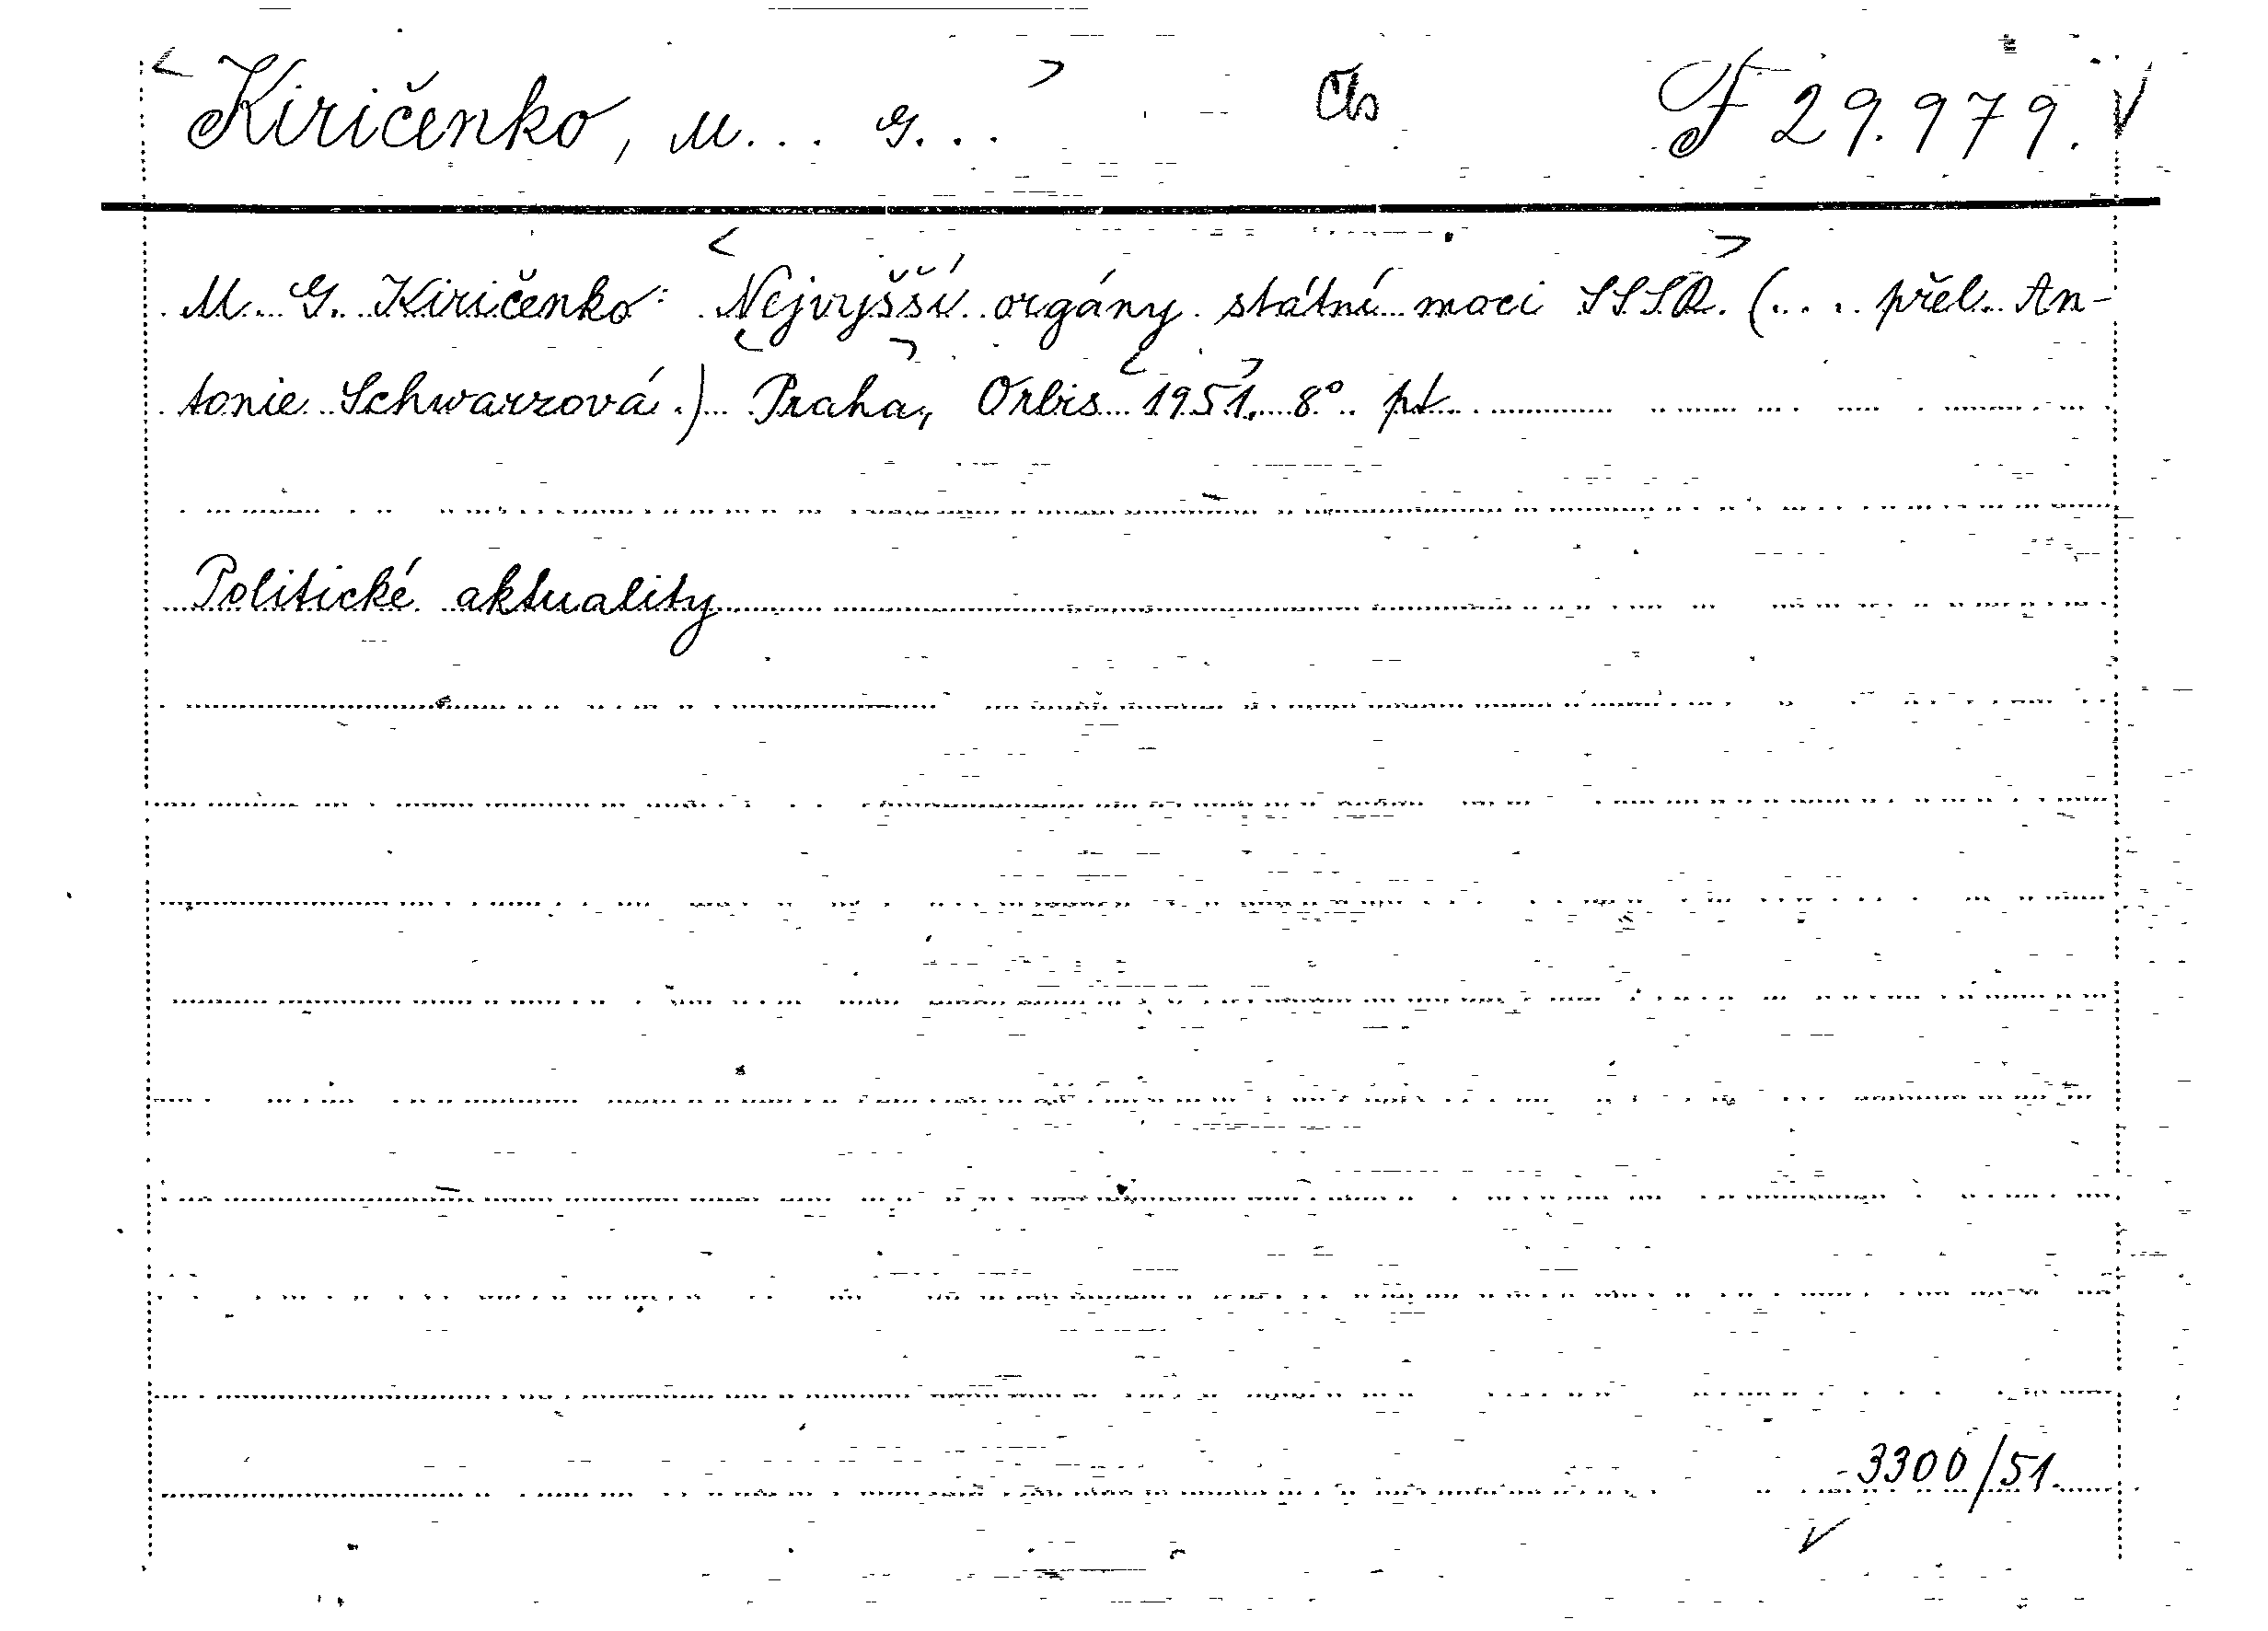 Kiričenko, M... G... F 29.979.
M. G. Kiričenko: Nejvyšší orgány státní moci SSSR. (.... přel. An-
tonie Schwarzová.) Praha, Orbis 1951. 8° pt
Politické aktuality
3300/51.